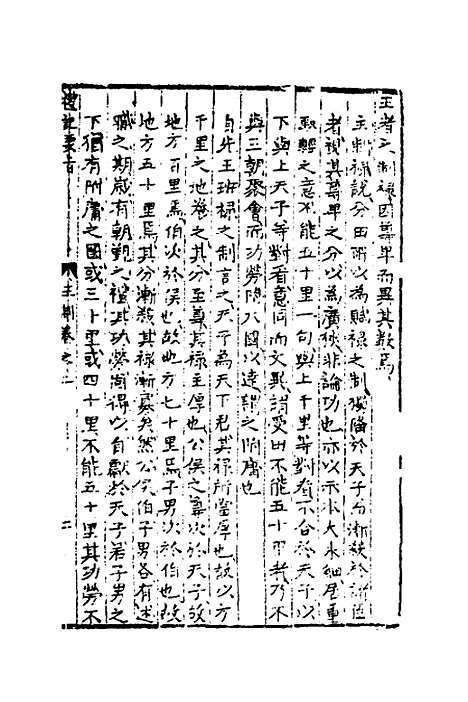 王者之制祿因尊卑而異其數焉
主制祿說分田所以為賦祿之制獨隆於天子而漸殺於諸臣
者視其尊卑之分以為廣狹非論功也亦以示小大本細居重
馭輕之意不能五十里一句與上千里等對看不合於天子以
下與上天子等對看意同而文異謂受田不能五十里者乃不
與王朝聚會而功勞附大國以達謂之附庸也
自先王班祿之制言之天子為天下君其祿所當厚也故以方
千里之地為之其分至尊其祿至厚也公侯之尊次於天子故
地方百里焉伯次於侯也故地方七十里焉子男次於伯也故
地方五十里焉其分漸殺其祿漸寡矣然公侯伯子男各有述
職之期歲有朝覲之禮其功勞尚得以自獻於天子若子男之
下猶有附庸之國或三十里或四十里不能五十里其功勞不
禮記
王制卷之二
二